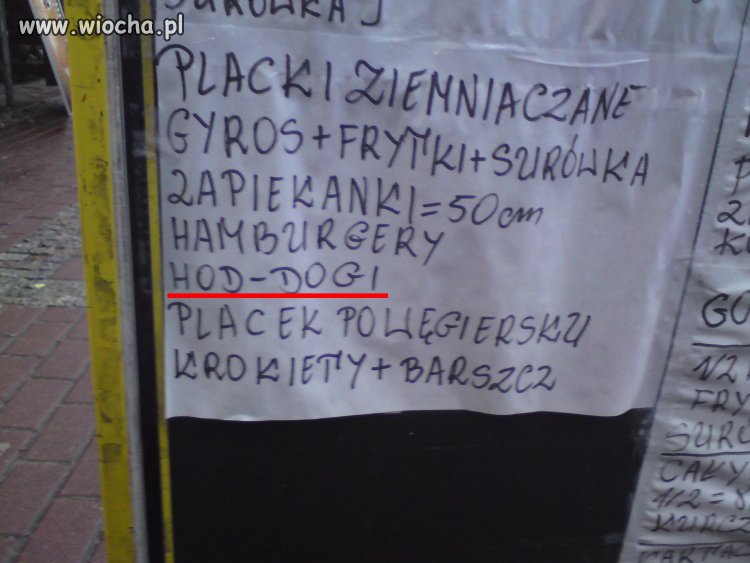 www.wiocha.pl
SURÓWKA
PLACKI ZIEMNIACZANE
GYROS + FRYTKI + SURÓWKA
ZAPIEKANKI = 50cm
HAMBURGERY
HOD-DOGI
PLACEK PO WĘGIERSKU
KROKIETY + BARSZCZ
1/2
FRY
SURÓ
CAŁY
1/2 =
KURCZ